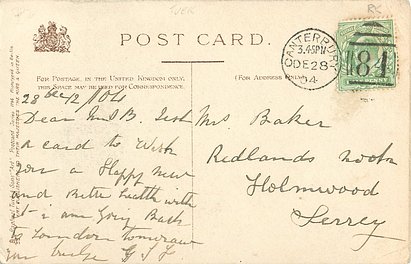 POST CARD.
FOR POSTAGE IN THE UNITED KINGDOM ONLY,
THIS SPACE MAY BE USED FOR CORRESPONDENCE.
(FOR ADDRESS ONLY.)
CANTERBURY
3.45PM
DE 28
04
84
28 12/04
Dear Mrs B. Just
a card to Wish
you a Happy new
and Better health with
it i am going Back
to London tomorrow
Mrs Baker
Redlands nook
Holmwood
Serrey